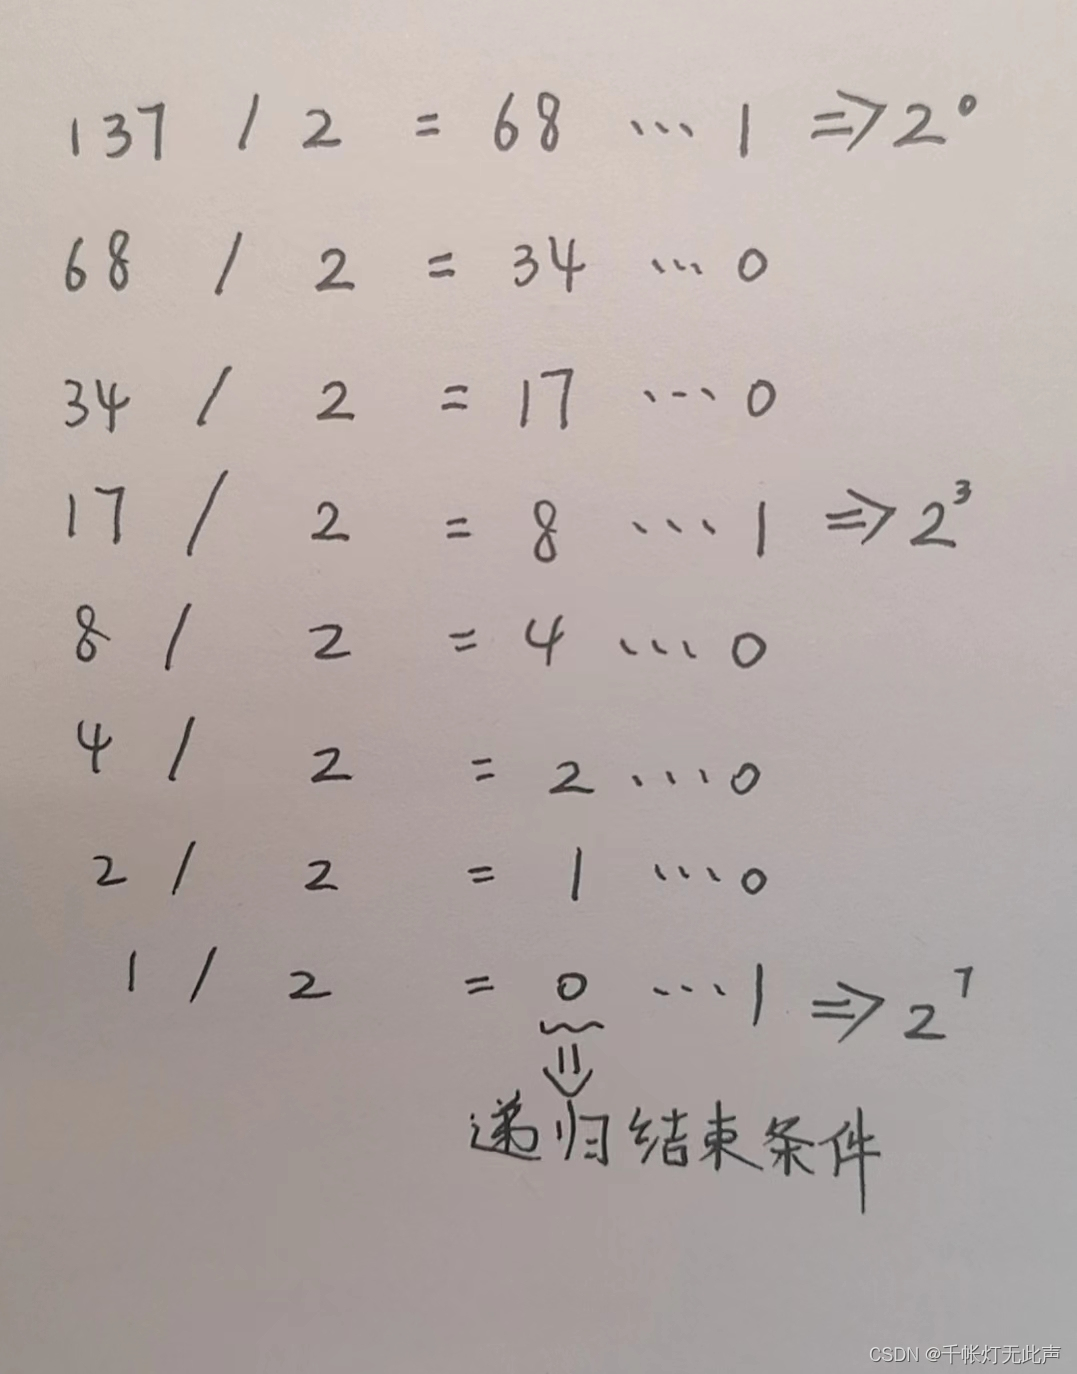 137 / 2 = 68 ... 1 => 2⁰
68 / 2 = 34 ... 0
34 / 2 = 17 ... 0
17 / 2 = 8 ... 1 => 2³
8 / 2 = 4 ... 0
4 / 2 = 2 ... 0
2 / 2 = 1 ... 0
1 / 2 = 0 ... 1 => 2⁷
递归结束条件
CSDN @千帐灯无此声